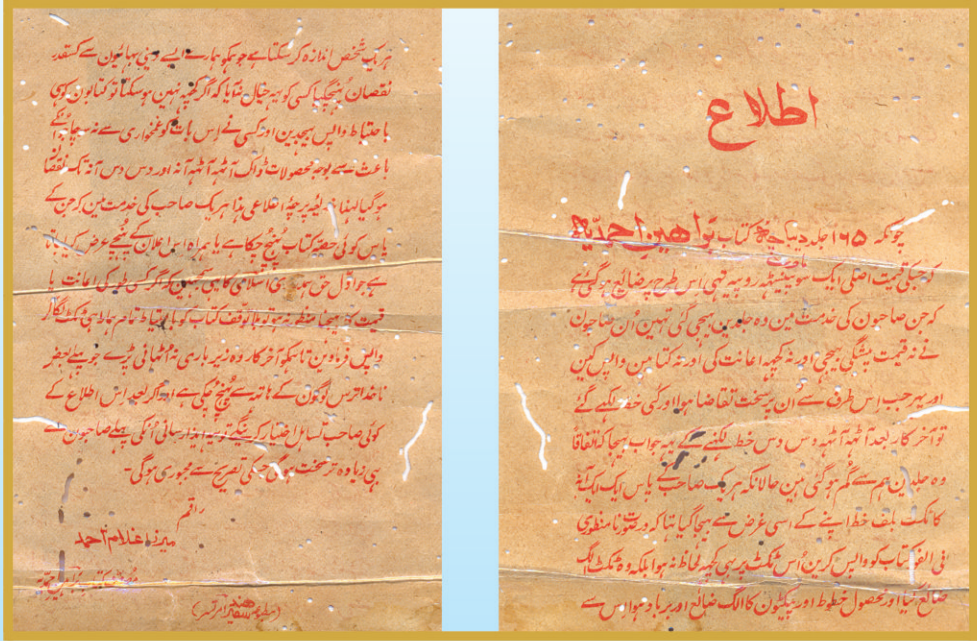 اطلاع
چونکہ ۱۶۵ جلد کتاب براھین احمدیہ
کہ جسکی قیمت اصلی ایک سو پینسٹھہ روپیہ تہی اس طرح پر ضائع ہو گئی ہے
کہ جن صاحبون کی خدمت مین وہ جلدین بہیجی گئی تہین اُن صاحبون
نے نہ قیمت پیشگی بہیجی اور نہ کچہہ اعانت کی اور نہ کتابین واپس کین
اور پہر جب اِس طرف سے اُن پر سخت تقاضا ہوا اور کئی خط لکہے گئے
تو آخر کار بعد آٹہہ آٹہہ دس دس خط لکہنے کے یہہ جواب بہیجا کہ اتفاقاً
وہ جلدین ہم سے گم ہو گئی ہین حالانکہ ہریک صاحب کے پاس ایک ایک آنہ
کا ٹکٹ بلف خط اپنے کے اسی غرض سے بہیجا گیا تہا کہ در صورت نامنظوری
فی الفور کتاب کو واپس کرین اُس ٹکٹ پر بہی کچہہ لحاظ نہ ہوا بلکہ وہ ٹکٹ الگ
ضائع گیا اور محصول خطوط اور پیکٹون کا الگ ضائع اور برباد ہوا اس سے
ہریک شخص اندازہ کر سکتا ہے جو ہمکو ہمارے ایسے دینی بہائیون سے کسقدر
نقصان پُہنچ گیا کسی کو یہہ خیال نہ آیا کہ اگر کچہہ نہین ہو سکتا تو کتابون کو ہی
با حتیاط واپس بہیجدین اور کسی نے اِس بات کو غمخواری سے نہ سوچا
باعث سے بوجہ محصولات ڈاک آٹہہ آٹہہ آنہ اور دس دس آنہ تک نقصان
ہو گیا لہذا بذریعہ پرچہ اطلاعی ہذا ہریک صاحب کی خدمت مین کہ جن کے
پاس کوئی حصہ کتاب پہنچ چکا ہے یا ہمراہ اس اعلان کے پُہنچے عرض کیا جاتا
ہے جو اوّل حق ہمدردی اسلامی کا یہی سمجہین کہ اگر کسی طور کی اعانت یا
قیمت کا بہیجنا منظور نہ ہو تو بلا توقف کتاب کو با حتیاط تمام ٹکٹ لگا کر
واپس فرماوین تا ہمکو آخر کار وہ زیر باری نہ اُٹہانی پڑے جو پہلے بعض
ناخدا ترس لوگون کے ہاتہہ سے پُہنچ چکی ہے اور اگر بعد اس اطلاع کے
کوئی صاحب تساہل اختیار کرینگے تو یہہ ایذا رسانی اُنکی پہلے صاحبون سے
بہی زیادہ تر سخت ہو گی جسکی تصریح سے مجبوری ہو گی ۔
راقم
میرزا غلام احمد
مؤلف کتاب براہین احمدیہ
(مطبوعہ سفیر ہند امرتسر)